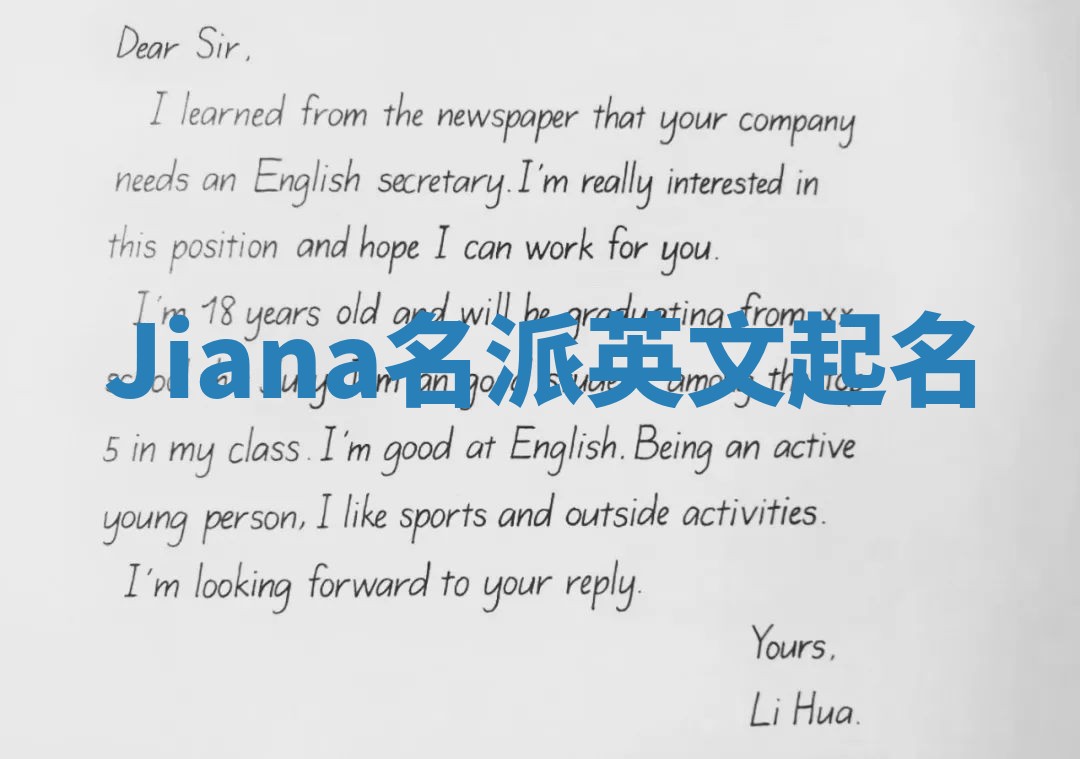 Dear Sir,
I learned from the newspaper that your company
needs an English secretary. I'm really interested in
this position and hope I can work for you.
I'm 18 years old and will be graduating from xx
Jiana名派英文起名
5 in my class. I'm good at English. Being an active
young person, I like sports and outside activities.
I'm looking forward to your reply.
Yours,
Li Hua.